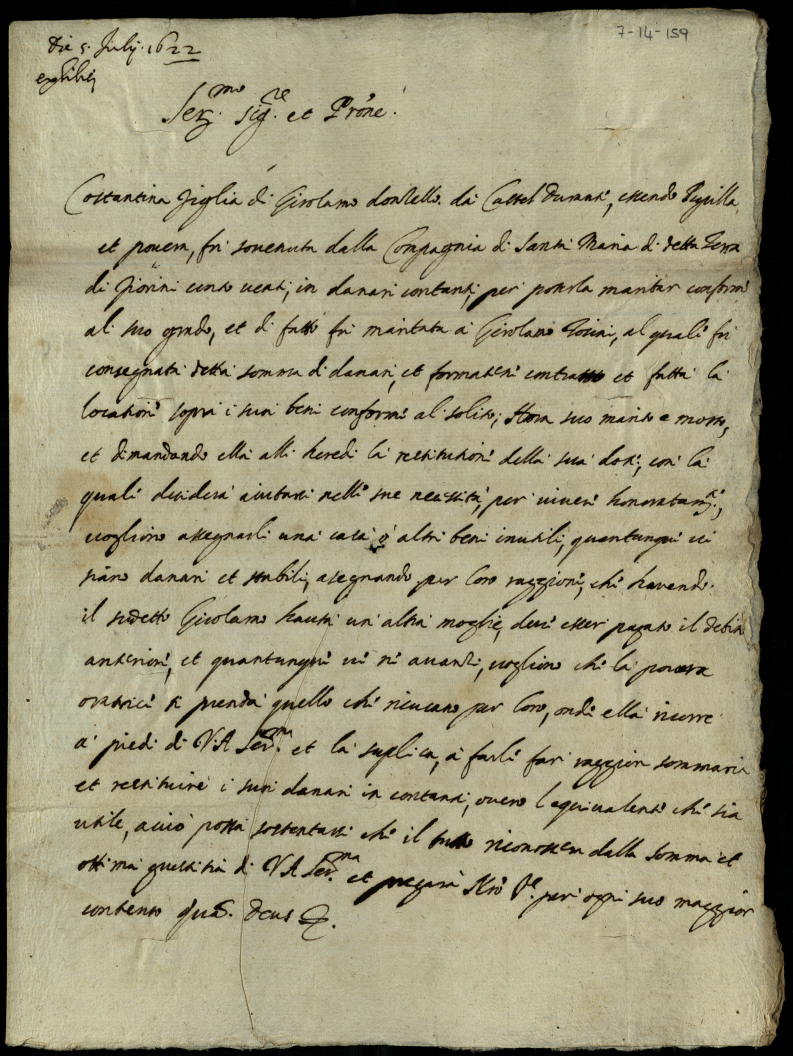 7-14-159
Die 5. July. 1622
exhibi
Ser.mo sig.re et Prone.
Costantina figlia di Girolamo donzello da Castel durante, essendo Pupilla,
et povera, fu sovenuta dalla Compagnia di Santa Maria di detta Terra
di fiorini cento venti, in danari contanti, per poterla maritar conforme
al suo grado, et di fatto fu maritata a Girolamo al quale fu
consegnata detta somma di danari, et formatene contratto et fatta la
locatione sopra i suoi beni conforme al solito; Hora suo marito e morto,
et dimandando ella alli heredi la restitutione della sua dote, con la
quale desidera aiutarsi nelle sue necessità, per vivere honoratam.te,
vogliono assegnarli una casa ò altri beni inutili, quantunque vi
siano danari et stabili, asegnando per loro raggione, che havendo
il sudetto Girolamo hauta un'altra moglie, deve esser pagato il debito
anteriore, et quantunque vi ne avanzi, vogliono che la povera
oratrice si prenda quello che ricusano per loro, onde ella ricorre
a' piedi di V.A Ser.ma et la suplica, a farle far raggion sommaria
et restituire i suoi danari in contanti, overo l'equivalente che sia
utile, acciò possa sostentarsi che il tutto riconoscera dalla somma et
ottima giustitia di V.A Ser.ma et pregarà per ogni suo maggior
contento qua. Deus